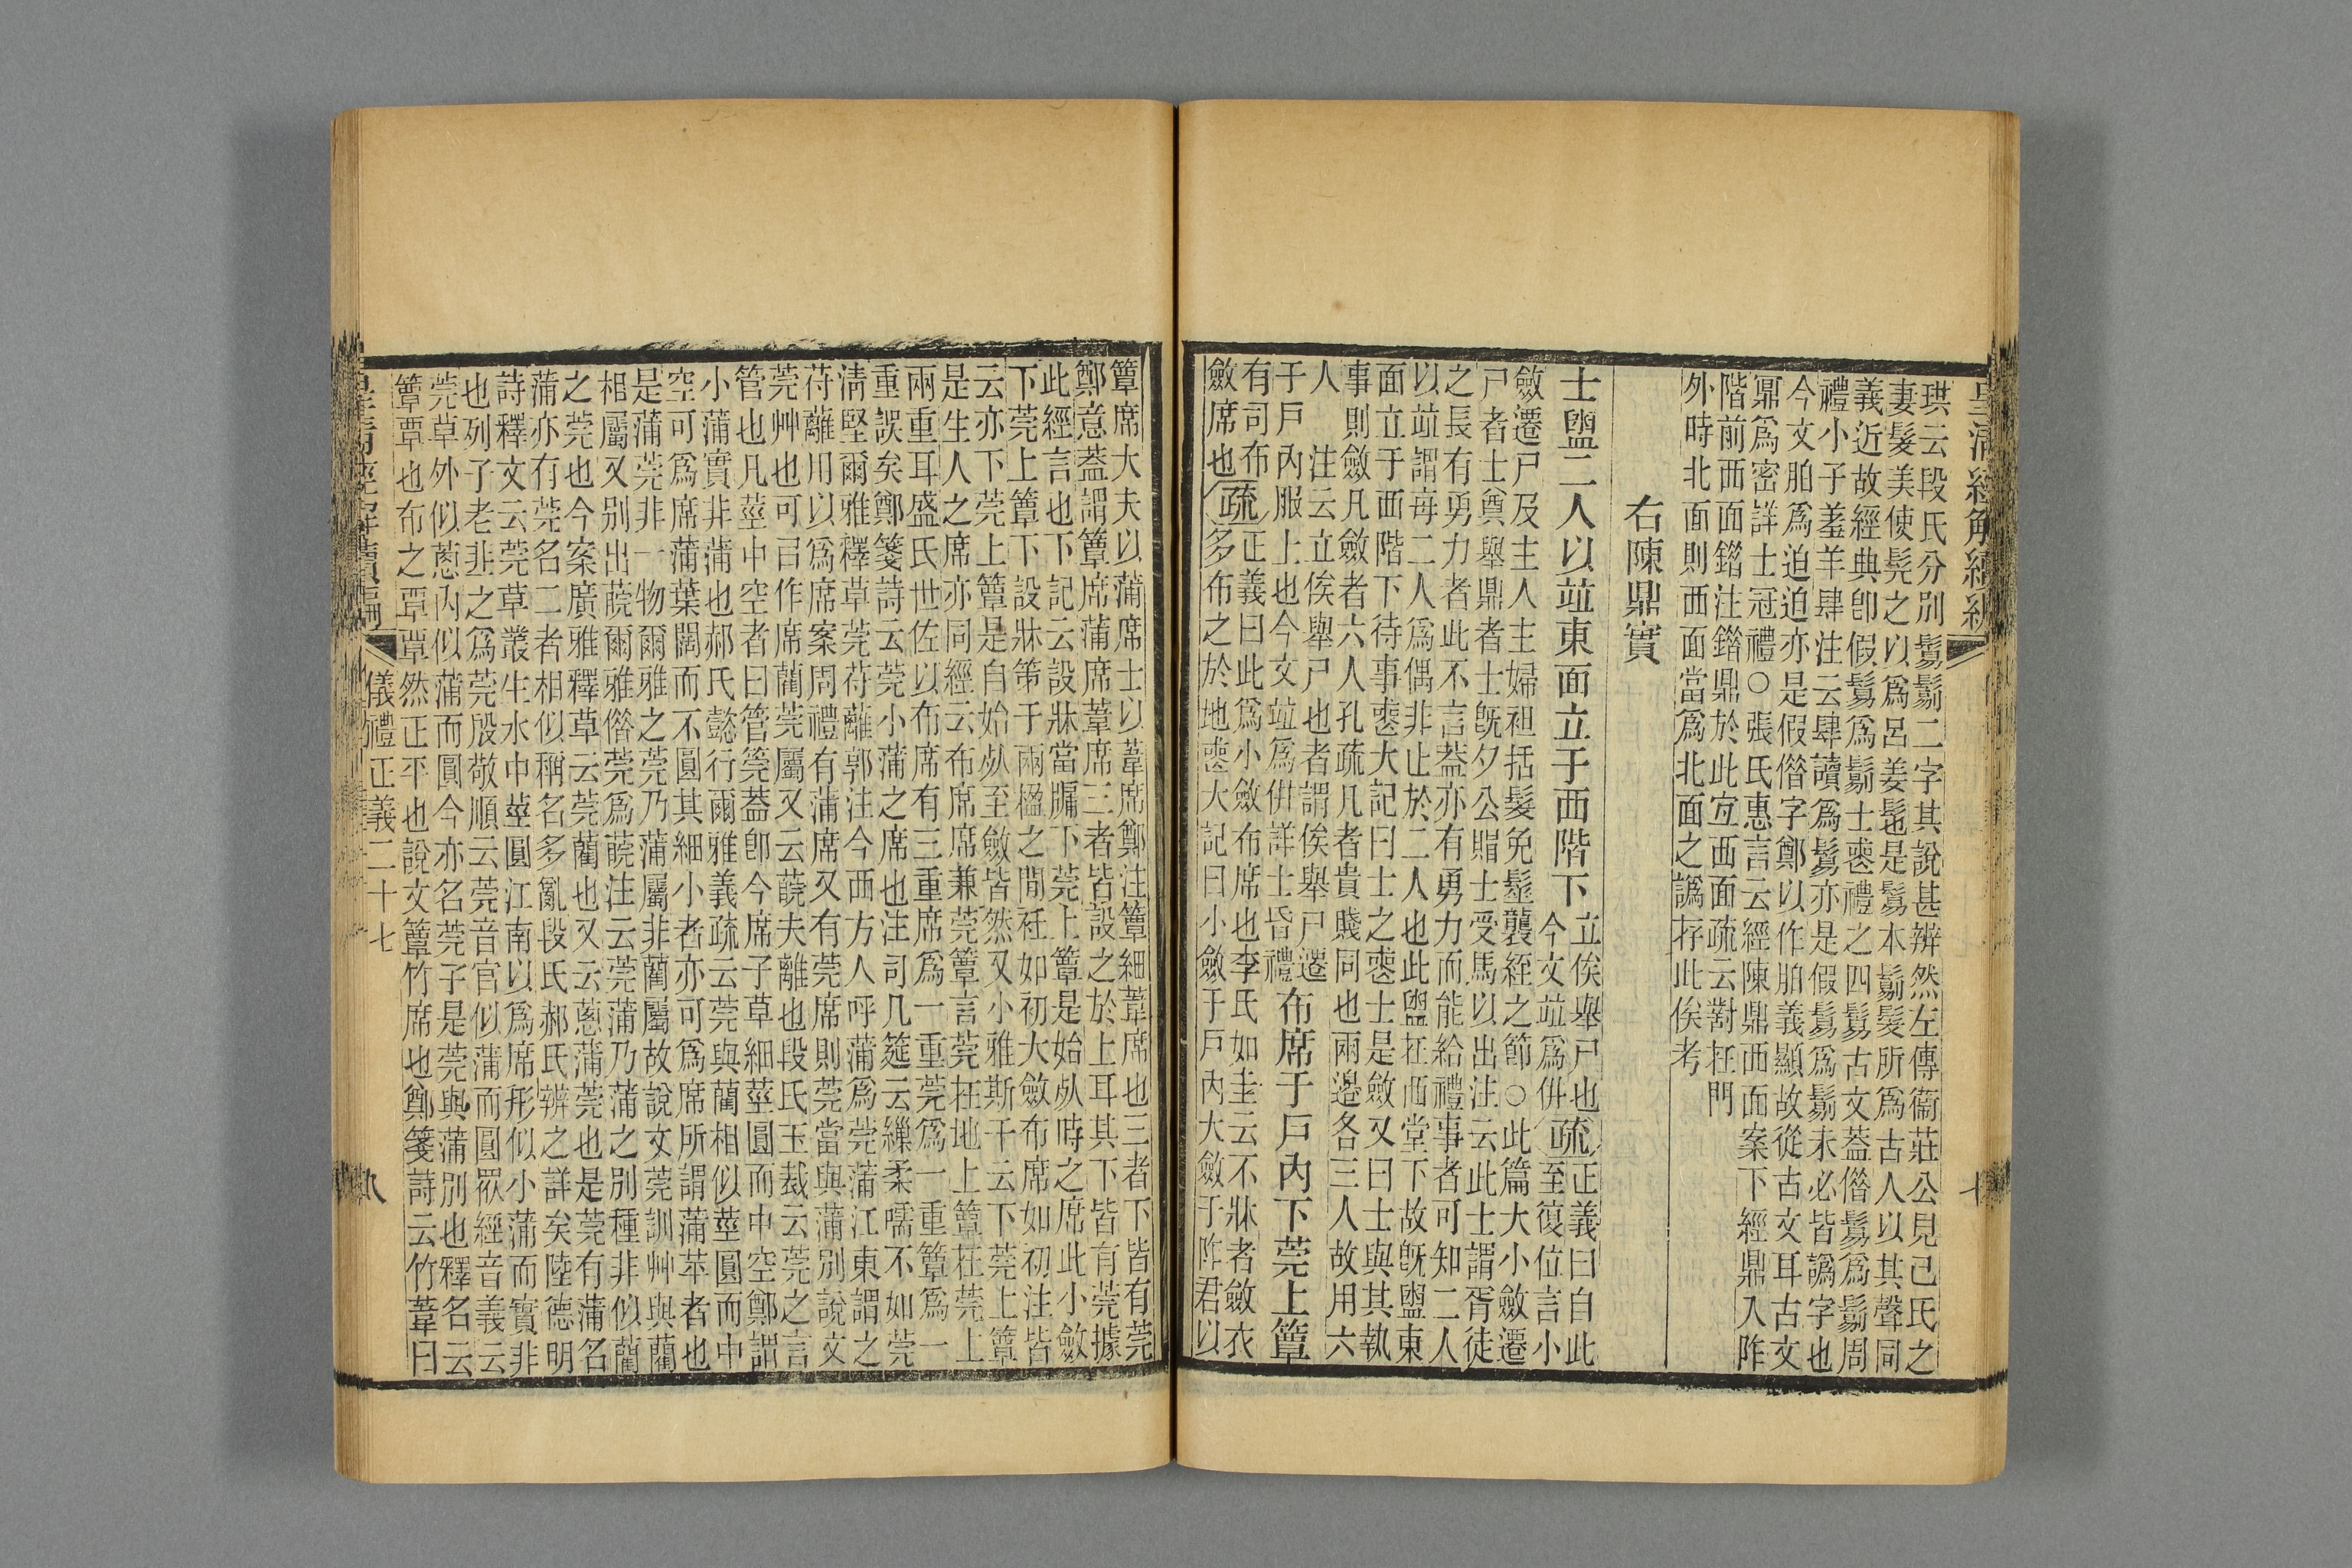 皇清經解續編
珙云段氏分別鬄鬀二字其說甚辨然左傳衞莊公見己氏之
妻髮美使髡之以爲呂姜髢也是鬄本鬀髮所爲古人以其聲同
義近故經典卽假鬄爲鬀士喪禮之四鬄古文蓋借鬄爲鬀周
禮小子羞羊肆注云肆讀爲鬄亦是假鬄爲鬀未必皆譌字也
今文胉爲迫迫亦是假借字鄭以作胉義顯故從古文耳古文
鼏爲密詳士冠禮○張氏惠言云經陳鼎西面案下經鼎入阼
階前西面錯注錯鼎於此宜西面疏云對在門
外時北面則西面當爲北面之譌存此俟考
右陳鼎實
士盥二人以竝東面立于西階下
立俟舉尸也
今文竝爲併
疏
正義曰自此
至復位言小
斂遷尸及主人主婦袒括髮免髽襲絰之節○此篇大小斂遷
尸者士奠舉鼎者士旣夕公賵士受馬以出注云此士謂胥徒
之長有勇力者此不言蓋亦有勇力而能給禮事者可知二人
以竝謂每二人爲偶非止於二人也此盥在西堂下故旣盥東
面立于西階下待事喪大記曰士之喪士是斂又曰士與其執
事則斂凡斂者六人孔疏凡者貴賤同也兩邊各三人故用六
人　注云立俟舉尸也者謂俟舉尸遷
于戶內服上也今文竝爲併詳士昏禮
布席于戶內下莞上簟
有司布
斂席也
疏
正義曰此爲小斂布席也李氏如圭云不牀者斂衣
多布之於地喪大記曰小斂于戶內大斂于阼君以
簟席大夫以蒲席士以葦席鄭注簟細葦席也三者下皆有莞
鄭意蓋謂簟席蒲席葦席三者皆設之於上耳其下皆有莞據
此經言也下記云設牀當牖下莞上簟是始死時之席此小斂
下莞上簟下設牀笫于兩楹之閒衽如初大斂布席如初注皆
云亦下莞上簟是自始死至斂皆然又小雅斯干云下莞上簟
是生人之席亦同經云布席席兼莞簟言莞在地上簟在莞上
兩重耳盛氏世佐以布席有三重席爲一重莞爲一重簟爲一
重誤矣鄭箋詩云莞小蒲之席也注司几筵云繅柔嚅不如莞
淸堅爾雅釋草莞苻蘺郭注今西方人呼蒲爲莞蒲江東謂之
苻蘺用以爲席案周禮有蒲席又有莞席則莞當與蒲別說文
莞艸也可㠯作席藺莞屬又云䕩夫蘺也段氏玉裁云莞之言
管也凡莖中空者曰管莞蓋卽今席子草細莖圓而中空鄭謂
小蒲實非蒲也郝氏懿行爾雅義疏云莞與藺相似莖圓而中
空可爲席蒲葉闊而不圓其細小者亦可爲席所謂蒲苹者也
是蒲莞非一物爾雅之莞乃蒲屬非藺屬故說文莞訓艸與藺
相屬又別出䕩爾雅借莞爲䕩注云莞蒲乃蒲之別種非似藺
之莞也今案廣雅釋草云莞藺也又云蔥蒲莞也是莞有蒲名
蒲亦有莞名二者相似稱名多亂段氏郝氏辨之詳矣陸德明
詩釋文云莞草叢生水中莖圓江南以爲席形似小蒲而實非
也列子老韭之爲莞殷敬順云莞音官似蒲而圓眾經音義云
莞草外似蔥內似蒲而圓今亦名莞子是莞與蒲別也釋名云
簟覃也布之覃覃然正平也說文簟竹席也鄭箋詩云竹葦曰
皇淸經解續編　儀禮正義二十七　八